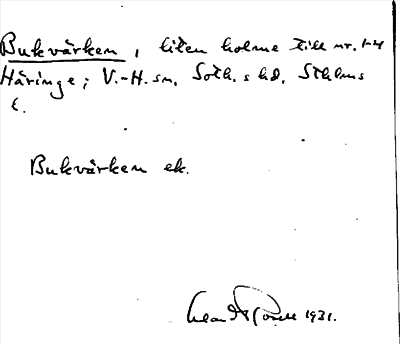 Bukvärken, liten holme till nr. 1-4
Häringe; V.-H. sn. Soth. s hd. Sthlms
l.
Bukvärken ek.
1931.